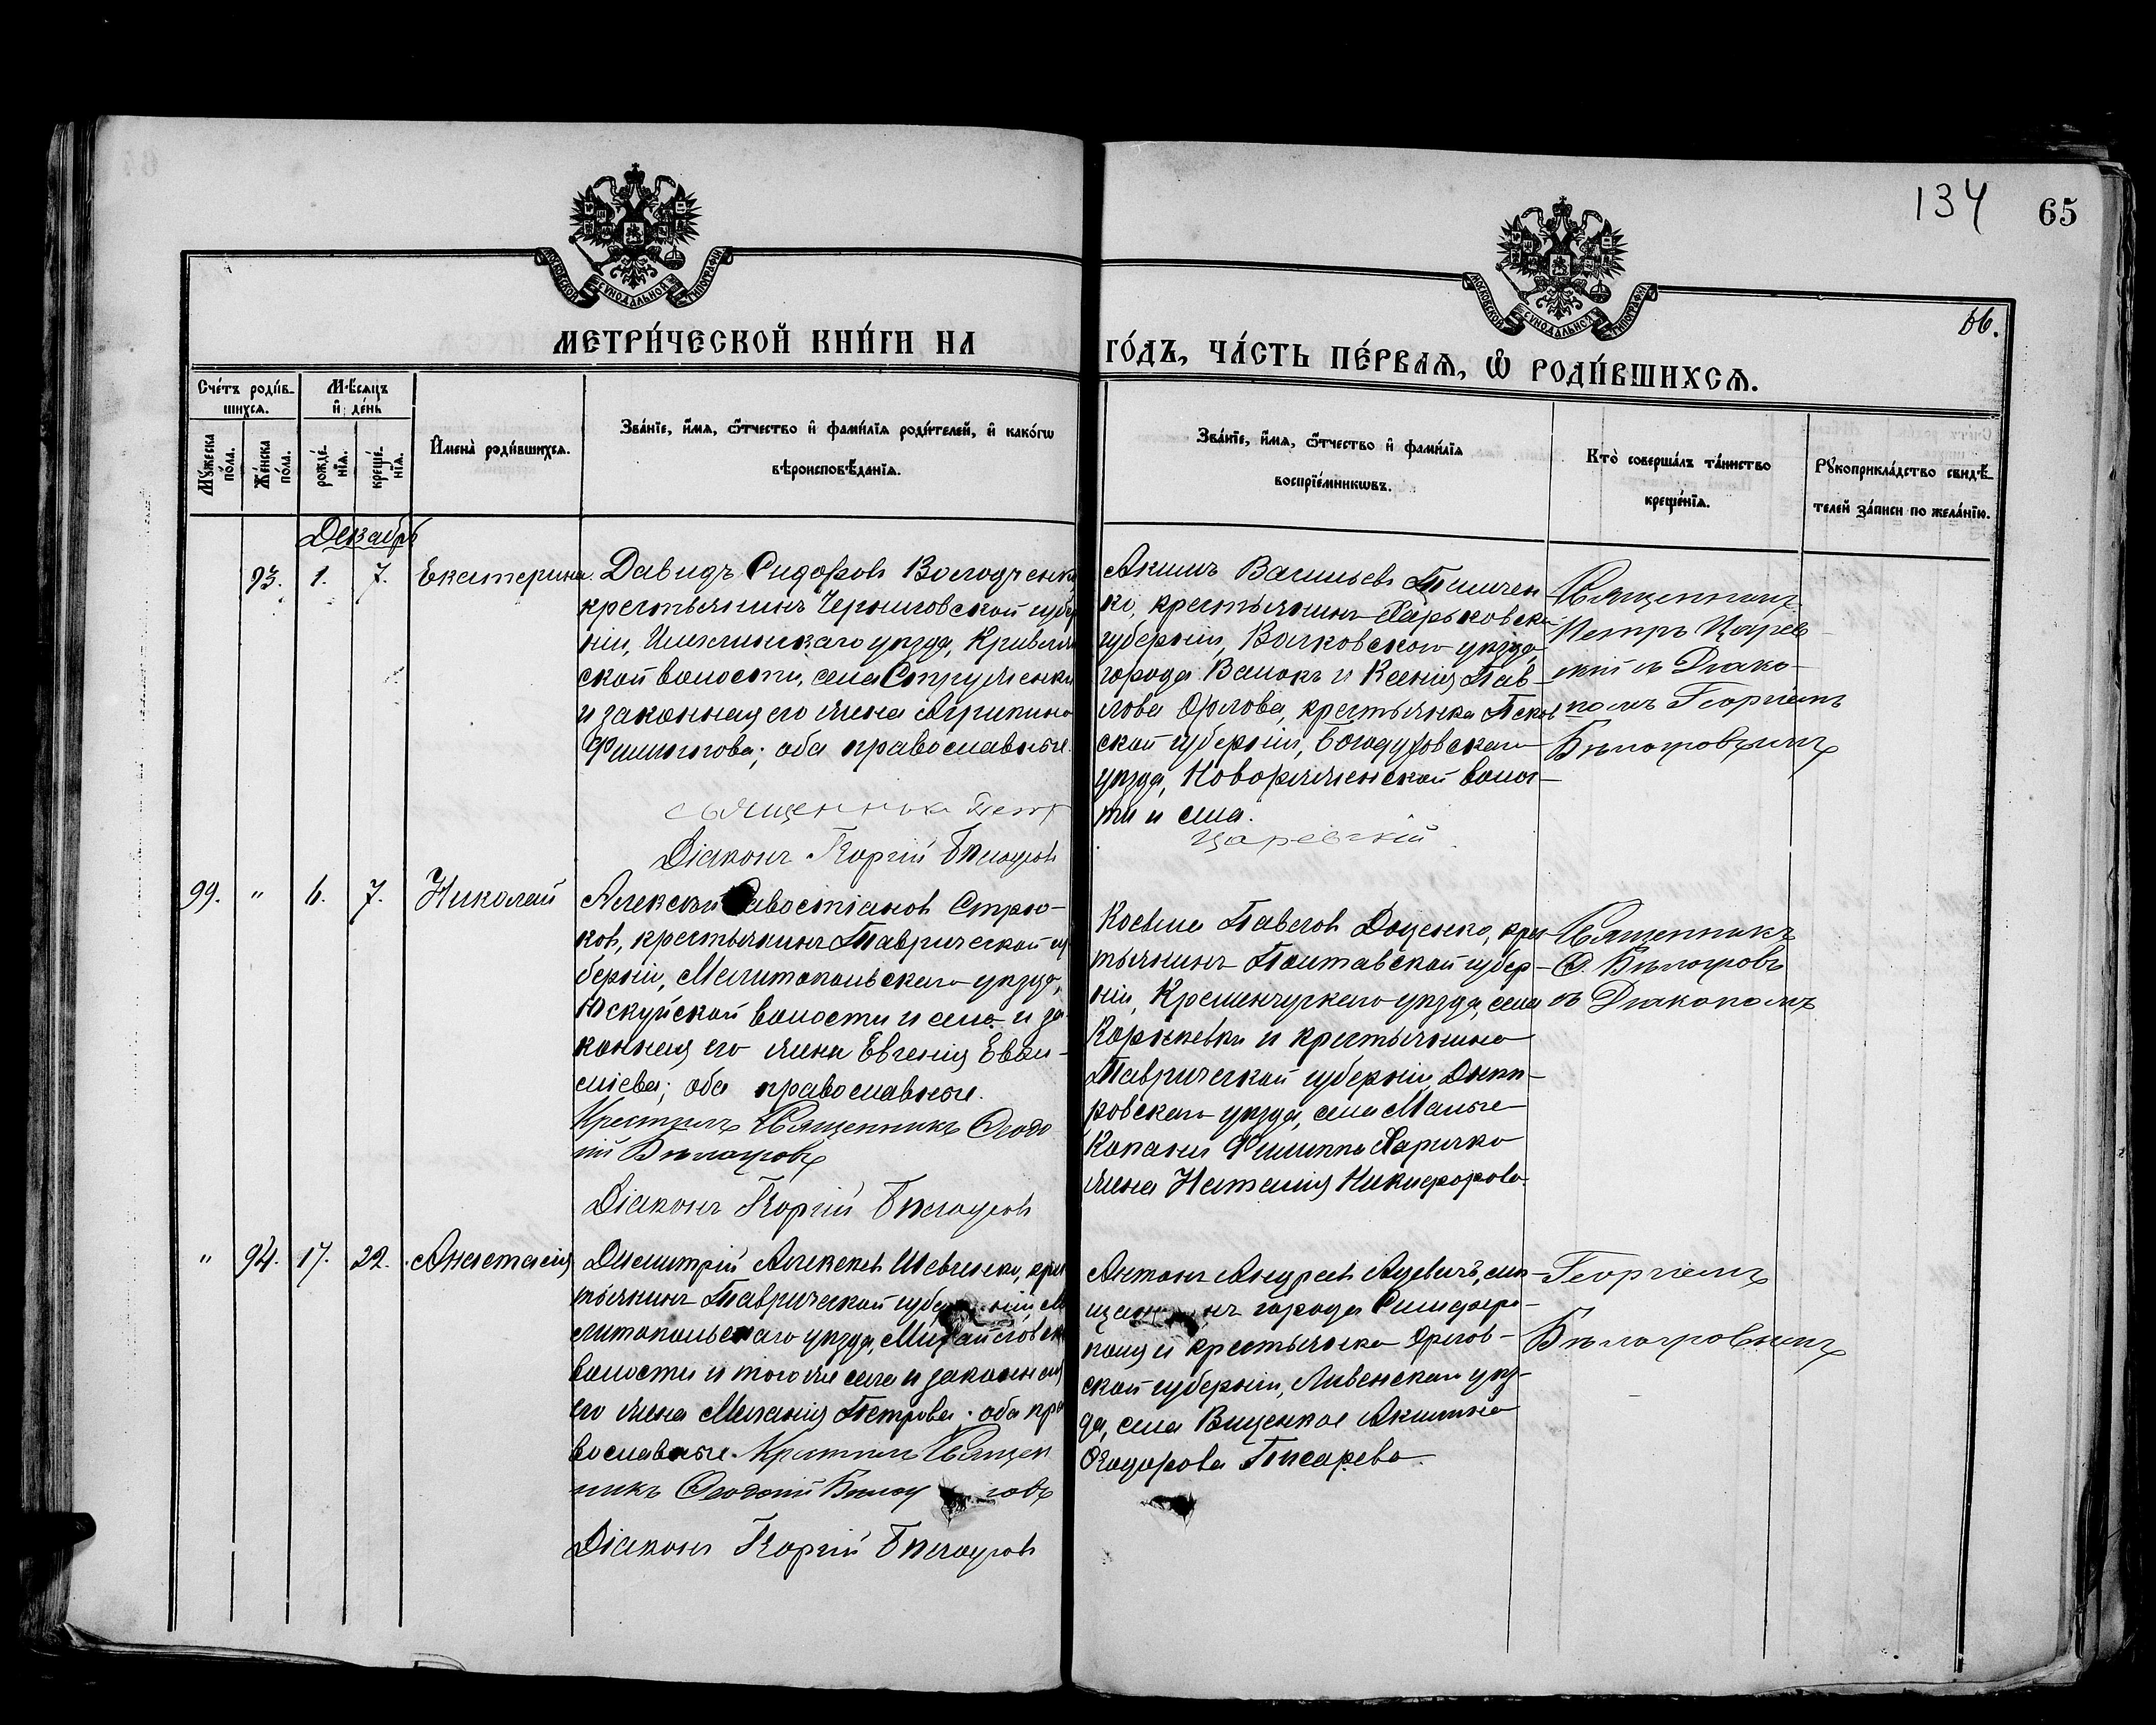 134
65
66.
МЕТРИ́ЧЕСКОЙ КНИ́ГИ НА
ГО́ДЪ, ЧА́СТЬ ПЕ́РВАЯ, Ѡ҆ РОДИ́ВШИХСѦ.
Счéтъ роди́в-
шихся.
Мѣ́сяцъ
и҆ де́нь
Мꙋ́жеска
по́ла.
Же́нска
по́ла.
рожде́-
нїя.
креще́-
нїя.
И҆мена̀ роди́вшихся.
Зва́нїе, и҆́мя, ѻ҆́тчество и҆ фами́лїя роди́телей, и҆ како́гѡ
вѣроисповѣ́данїя.
Зва́нїе, и҆́мя, ѻ҆́тчество и҆ фами́лїя
воспрїе́мникѡвъ.
Кто̀ соверша́лъ та́инство
креще́нїя.
Рꙋкоприкла́дство свидѣ́-
телей за́писи по жела́нїю.
Декабрь
93. 1. 7. Екатерина.
Давидъ Сидоровъ
крестьянинъ Черниговской губер
ніи, уѣзда,
ской волости, села
и законная его жена Агрипина
Филиппова; оба православные.
священникъ Петр
Діаконъ Георгій Бѣлогуровъ
Акимъ Васильевъ Тимчен
ко, крестьянинъ Харьковской
губерніи, Валковскаго уѣзда,
города Валокъ и Ксенія Пав-
лова Орлова, крестьянка
ской губерніи, Богодуховскаго
уѣзда, волос-
ти и села.
Царевскій
Священникъ
Петръ Царев-
скій съ Діако-
номъ Георгіемъ
99. " 6. 7. Николай
Алексѣй Савостіановъ Стрю-
ковъ, крестьянинъ Таврической гу
берніи, Мелитопольскаго уѣзда,
Юскуйской волости и села и за
конная его жена Евгенія
оба православные.
Крестилъ Священникъ Ѳеодо
Діаконъ Георгій Бѣлогуровъ
Косьма Павловъ Доценко, крес
тьянинъ Полтавской губер-
ніи, Кременчугскаго уѣзда, села
и крестьянина
Таврической губерніи Днѣп-
ровскаго уѣзда, села Малые
Копани Филиппа
жена Наталія Никифорова.
Священникъ
Ѳ. Бѣлогуровъ
съ Діакономъ
" 94. 17. 22. Анастасія
Димитрій Алексѣевъ Шевченко, крес
тьянинъ Таврической губерніи Ме
литопольскаго уѣзда, Михайловск
волости и того же села и законная
его жена Меланія Петрова; оба пра
вославные. Крестилъ Священ
никъ
Діаконъ Георгій Бѣлогуровъ
Антонъ Андреевъ мѣ-
щанинъ города Симферо-
поля и крестьянка Орлов-
ской губерніи, Ливенскаго уѣз-
да, села Акилина
Ѳеодорова Писарева.
Георгіемъ